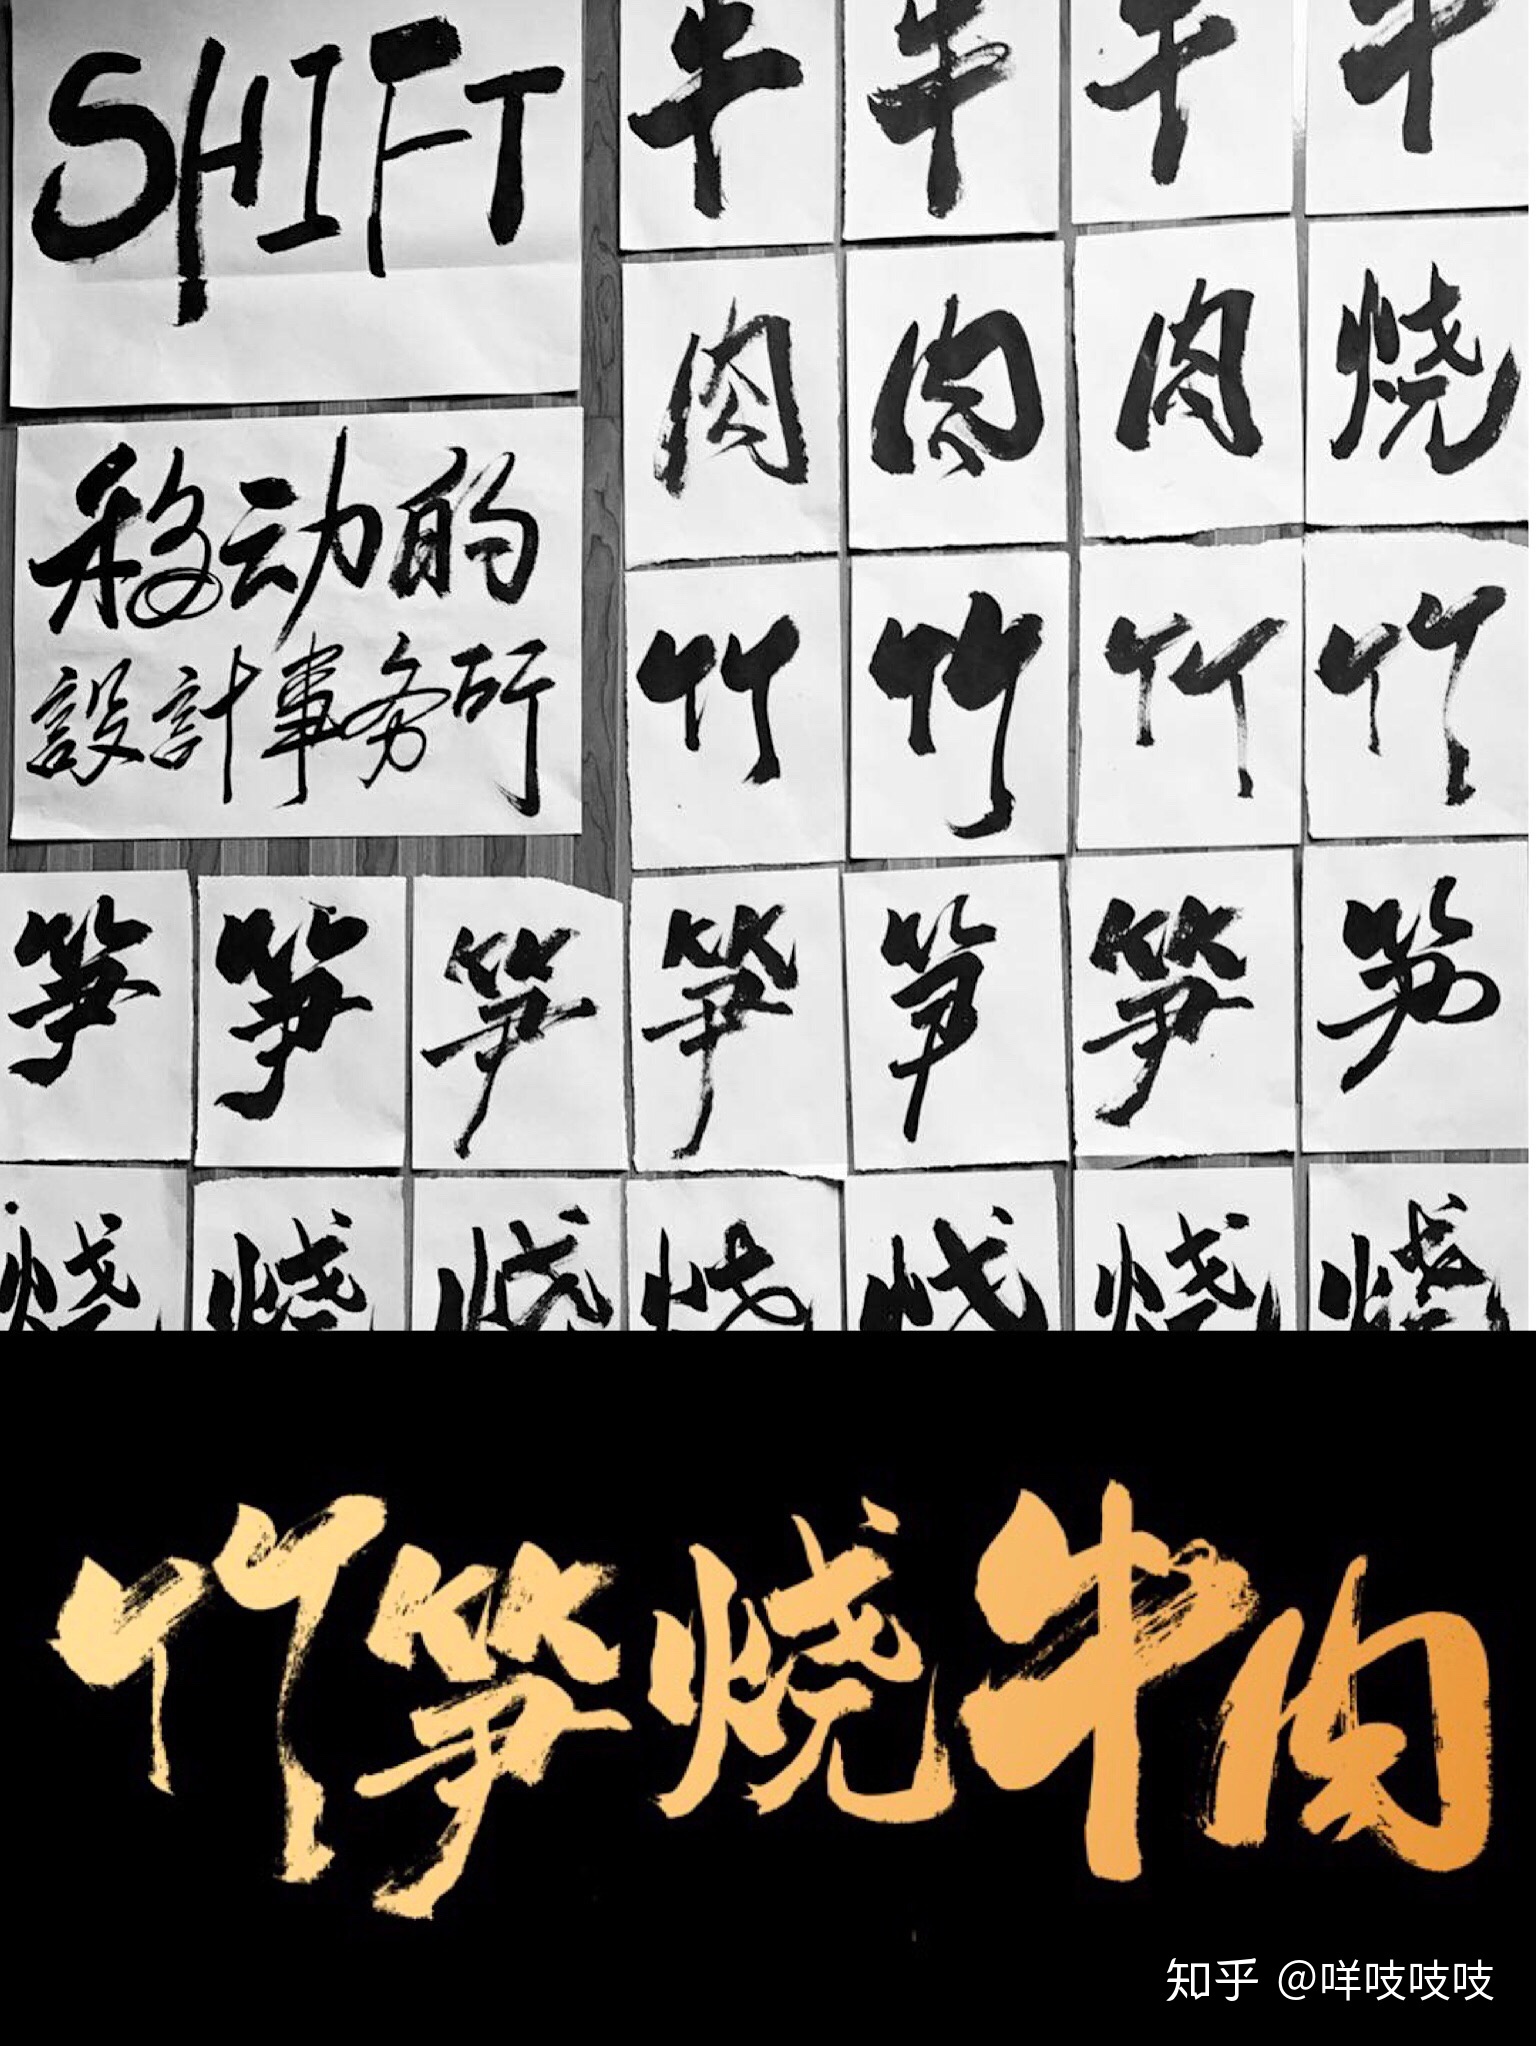 SHIFT
移动的
設計事务所
牛 牛 牛 牛
肉 肉 肉 烧
竹 竹 竹 竹
笋 笋 笋 笋 笋 笋 笋
烧 烧 烧 烧 烧 烧 烧
竹笋烧牛肉
知乎 @咩吱吱吱